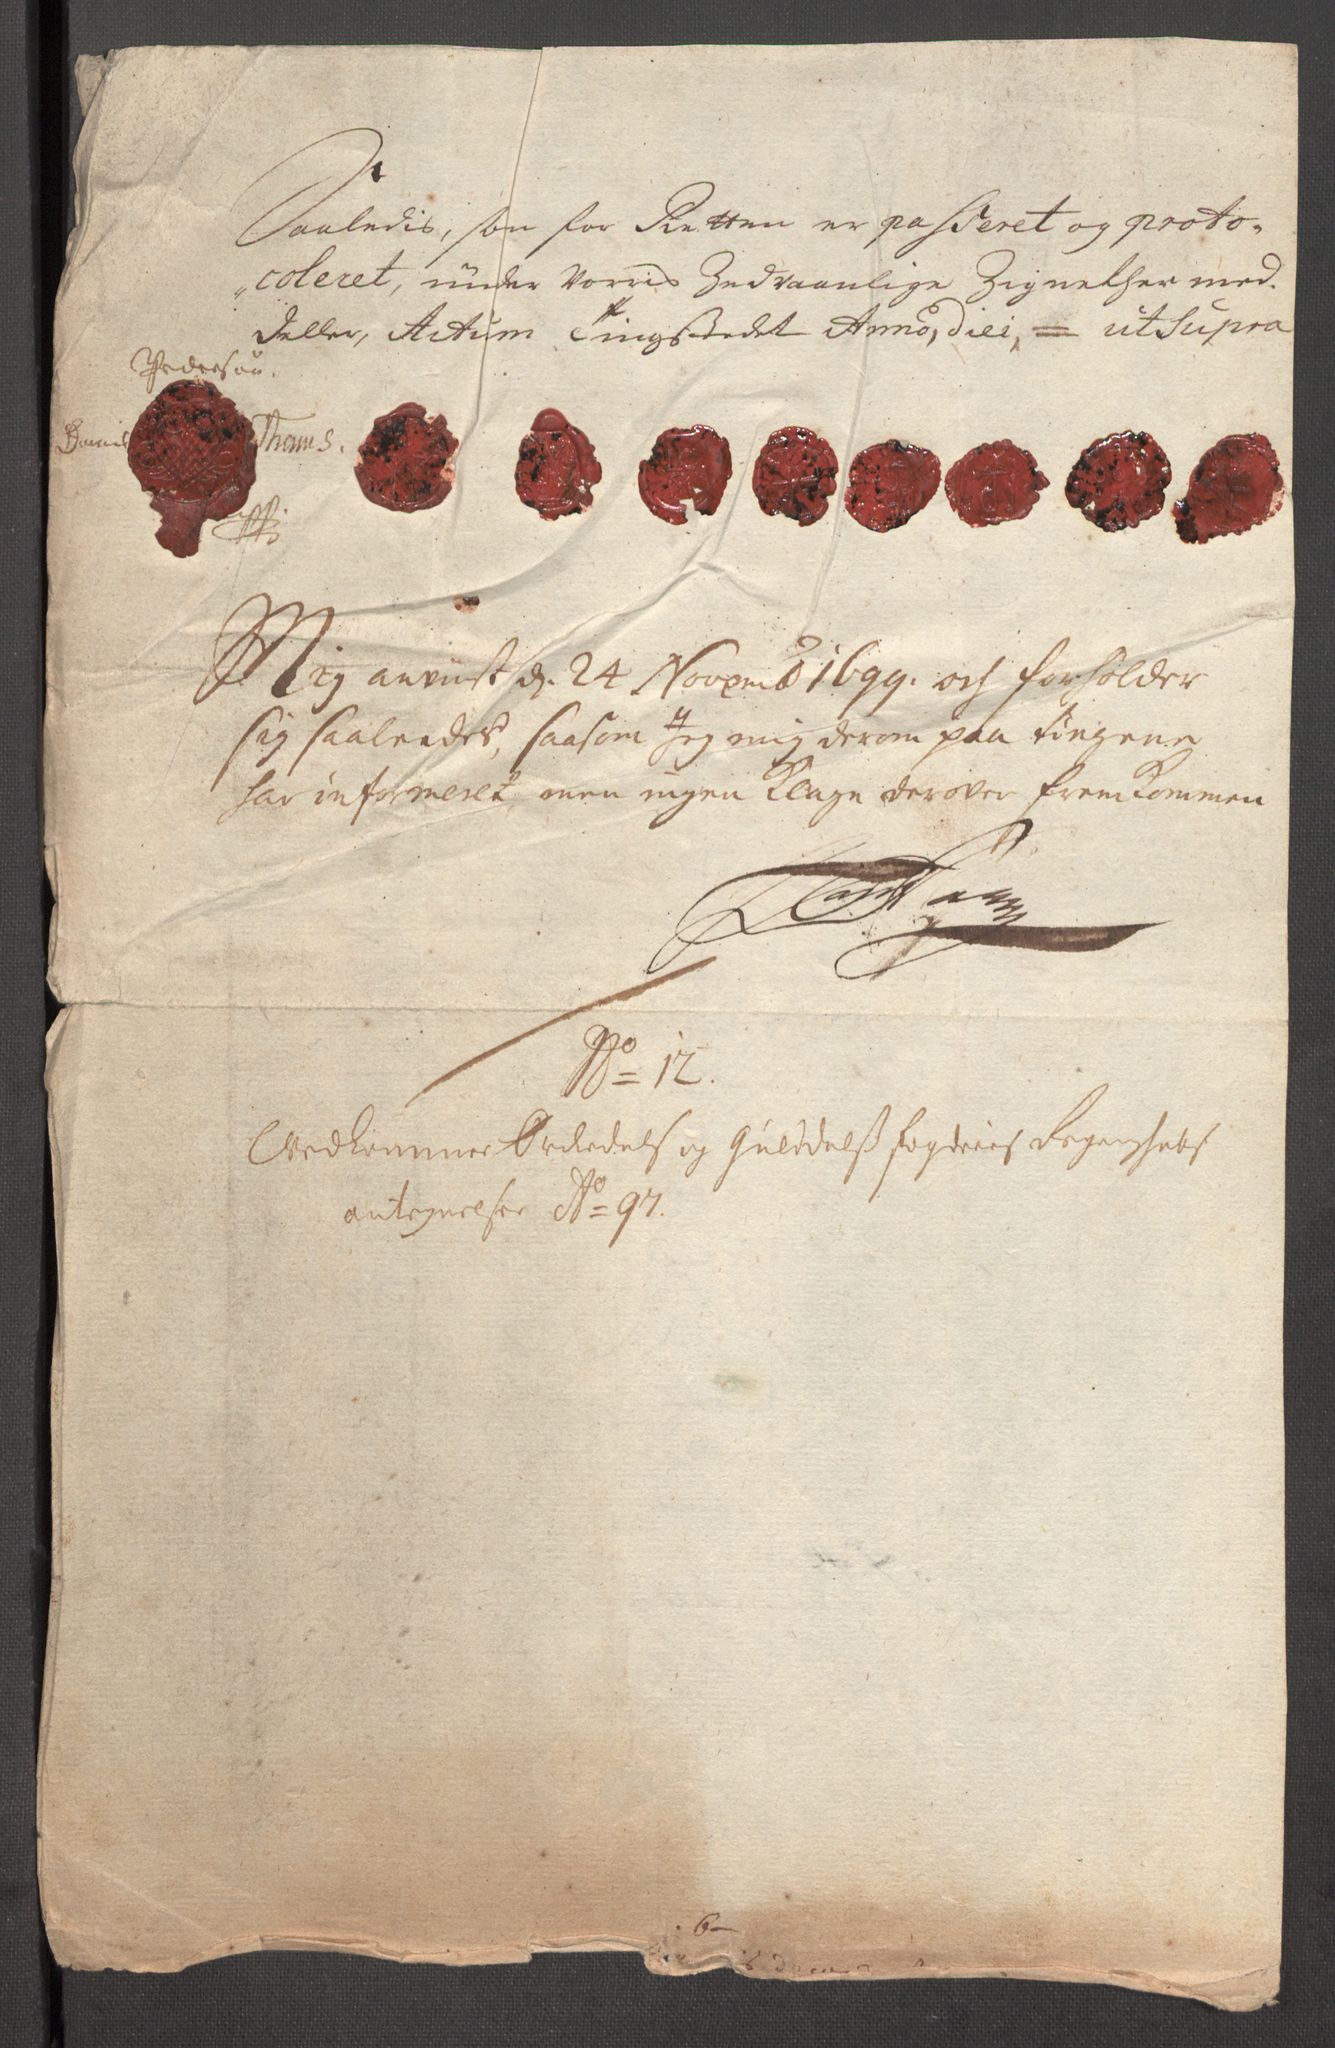 Saaledis, som for Retten er passeret og proto-
coleret, under vorris Zedvaanlige Zignether med
deller, Actum Tingstedet Anno, diei, = ut Supra
Pedersøn.
Thams.
Mig anvist d. 24 Novemb 1699. och forholder
sig saaledes, saasom Jeg mig derom paa tingene
har informeret, men ingen Klage derover fremkommen
No = 12.
Vedkommer Orckedals og Guldals fogderies Regenschabs
antegnelser No = 97.
6